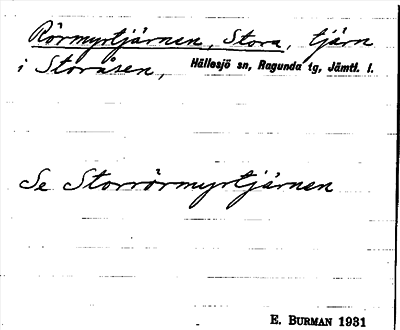 Rörmyrtjärnen, Stora, tjärn
i Storåsen, Hällesjö sn, Ragunda tg, Jämtl. l.
Se Storrörmyrtjärnen
E. BURMAN 1931